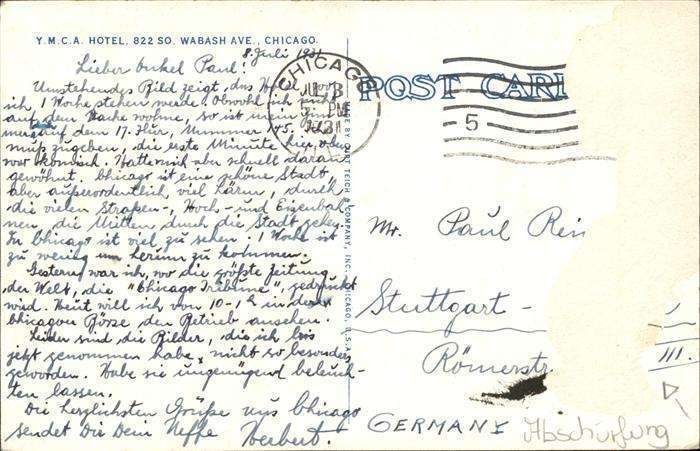 Y.M.C.A. HOTEL, 822 SO. WABASH AVE., CHICAGO.
8. Juli 1931
Lieber Onkel Paul!
Umstehendes Bild zeigt das Hotel, wo
ich 1 Woche stehen werde. Obwohl ich nicht
auf dem Dache wohne, so ist mein Zimmer
auf dem 17. Hier, Nummer 145. Ich
muß zugeben, die erste Minute hier oben
war komisch. Hatte mich aber schnell daran
gewöhnt. Chicago ist eine schöne Stadt,
aber außerordentlich viel Lärm, durch
die vielen Straßen-, Hoch- und Eisenbah-
nen, die Mitten durch die Stadt gehen.
In Chicago ist viel zu sehen. 1 Woche ist
zu wenig um herum zu kommen.
Gestern war ich, wo die größte Zeitung
der Welt, die "Chicago Tribune", gedruckt
wird. Heut will ich von 10-1 in der
Chicagoer Börse den Betrieb ansehen.
Leider sind die Bilder, die ich bis
jetzt genommen habe, nicht so besonders
geworden. Habe sie ungenügend beleuch-
ten lassen.
Die herzlichsten Grüße aus Chicago
sendet Dir Dein Neffe Herbert.
CHICAGO
JUL 8
5 PM
1931
5
POST CARD
CURT TEICH & COMPANY, INC., CHICAGO, U.S.A.
Mr. Paul Rein
Stuttgart -
Römerstr
III.
GERMANY
Abschürfung